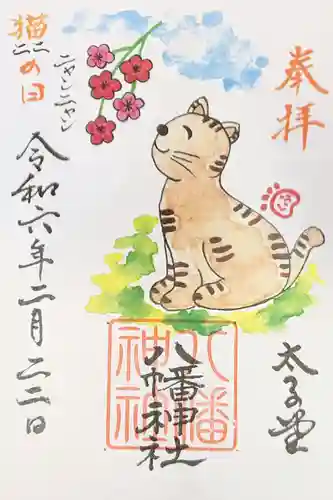 奉拝
太子堂
八幡神社
八幡
神社
猫の日
ニャンニャン
令和六年二月二二日